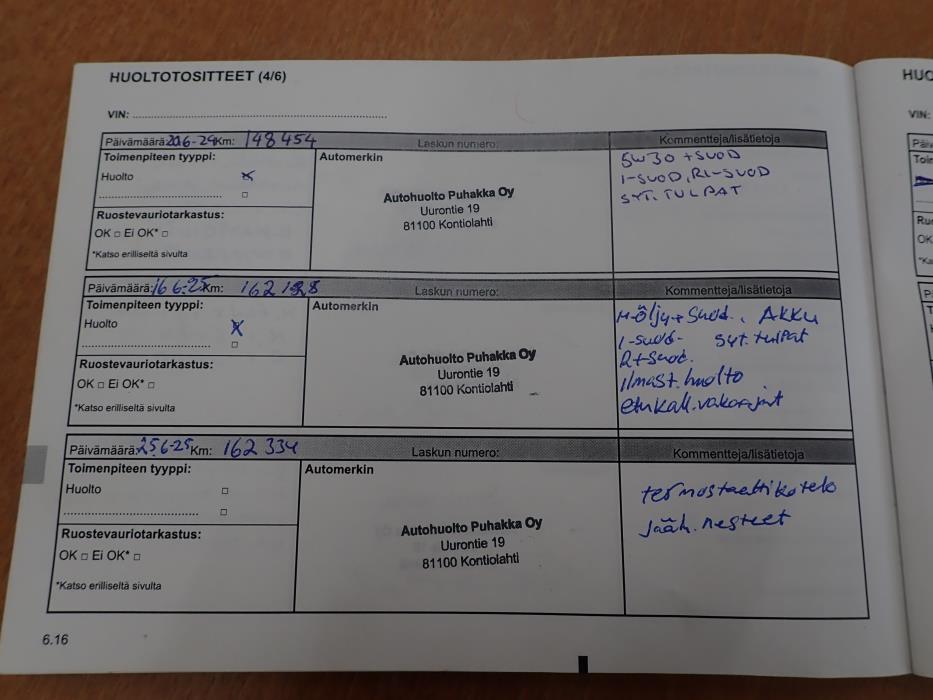 HUOLTOTOSITTEET (4/6)
VIN:
Päivämäärä: 20.6-24 Km: 148454 Laskun numero: Kommentteja/lisätietoja
Toimenpiteen tyyppi: Automerkin
Huolto
Autohuolto Puhakka Oy
Uurontie 19
81100 Kontiolahti
5W30 + SUOD
I-SUOD, RI-SUOD
SYT. TULPAT
Ruostevauriotarkastus:
OK □ Ei OK* □
*Katso erilliseltä sivulta
Päivämäärä: 16.6-25 Km: Laskun numero: Kommentteja/lisätietoja
Toimenpiteen tyyppi: Automerkin
Huolto
Autohuolto Puhakka Oy
Uurontie 19
81100 Kontiolahti
M-Öljy + Suod., AKKU
I-suod- syt. tulpat
Rt-suod.
Ilmast. huolto
etukall. vakaajat
Ruostevauriotarkastus:
OK □ Ei OK* □
*Katso erilliseltä sivulta
Päivämäärä: 25.6-25 Km: 162 334 Laskun numero: Kommentteja/lisätietoja
Toimenpiteen tyyppi: Automerkin
Huolto □
Autohuolto Puhakka Oy
Uurontie 19
81100 Kontiolahti
termostaattikotelo
Jääh. nesteet
Ruostevauriotarkastus:
OK □ Ei OK* □
*Katso erilliseltä sivulta
6.16
VIN: